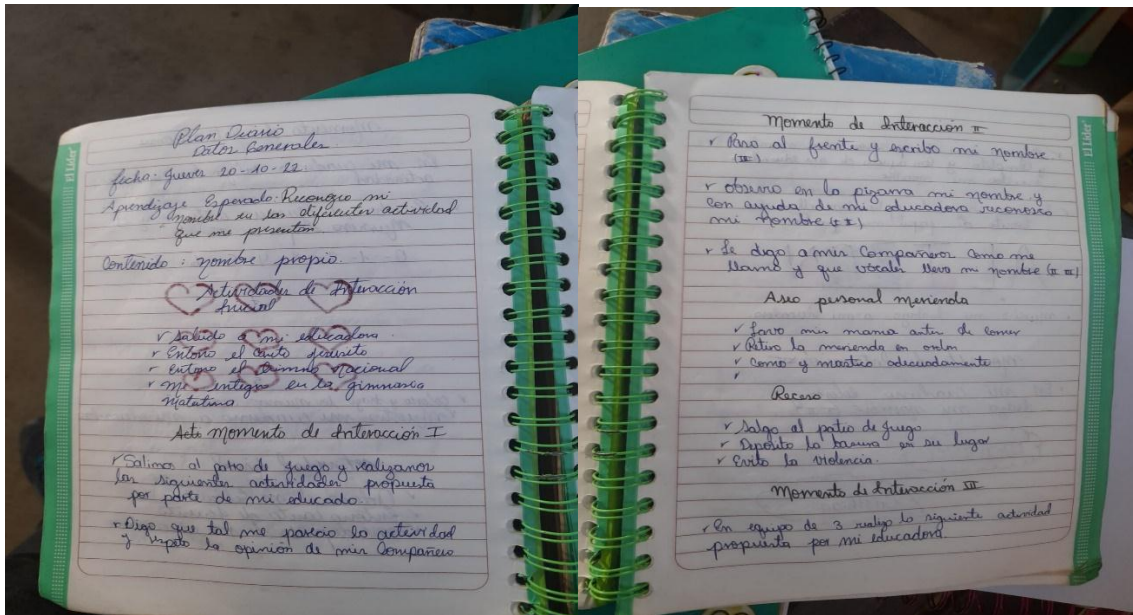 Plan Diario
Datos Generales
fecha: Jueves 20-10-22
Aprendizaje Esperado: Reconozco mi
nombre en las diferentes actividad
que me presentan
Contenido: nombre propio.
Actividades de Interacción
Inicial
✓ Saludo a mi educadora
✓ Entono el canto favorito
✓ Entono el himno nacional
✓ me integro en la gimnasia
matutina
Acti Momento de Interacción I
✓ Salimos al patio de juego y realizamos
las siguientes actividades propuesta
por parte de mi educado.
✓ Digo que tal me parecio la actividad
y respeto la opinión de mis Compañero
El Líder
Momento de Interacción II
✓ Paso al frente y escribo mi nombre
✓ observo en la pizarra mi nombre y
con ayuda de mi educadora reconosco
mi nombre (II)
✓ Le digo a mis Compañeros como me
llamo y que vocales lleva mi nombre (II III)
Aseo personal merienda
✓ Lavo mis manos antes de comer
✓ Retiro la merienda en orden
✓ Como y mastico adecuadamente
✓
Receso
✓ Salgo al patio de juego
✓ Deposito la basura en su lugar
✓ Evito la violencia.
Momento de Interacción III
✓ En equipo de 3 realizo la siguiente actividad
propuesta por mi educadora
El Líder